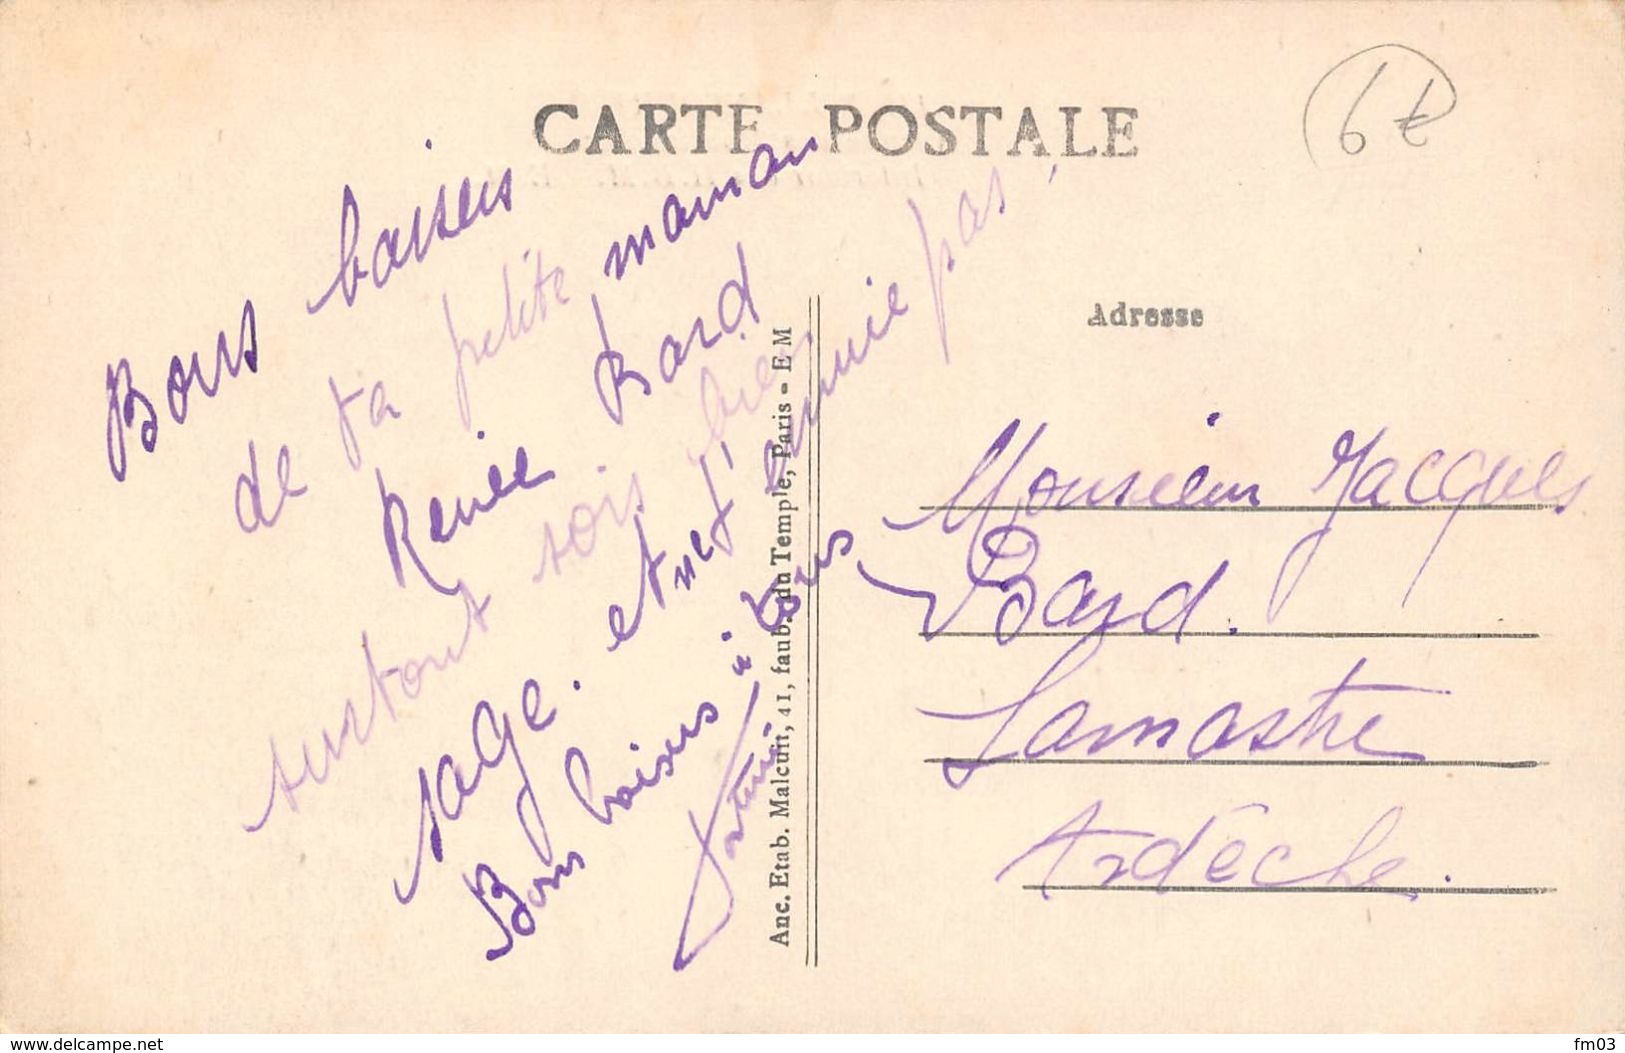 CARTE POSTALE
6€
Bons baisers
de ta petite maman
Renée Bard
surtout sois bien
sage. et ne t'ennuie pas,
Bons baisers à tous
Anc. Etab. Malcuit, 41, faub. du Temple, Paris - E M
Adresse
Monsieur Jacques
Bard.
Lamastre
Ardèche.
www.delcampe.net
fm03